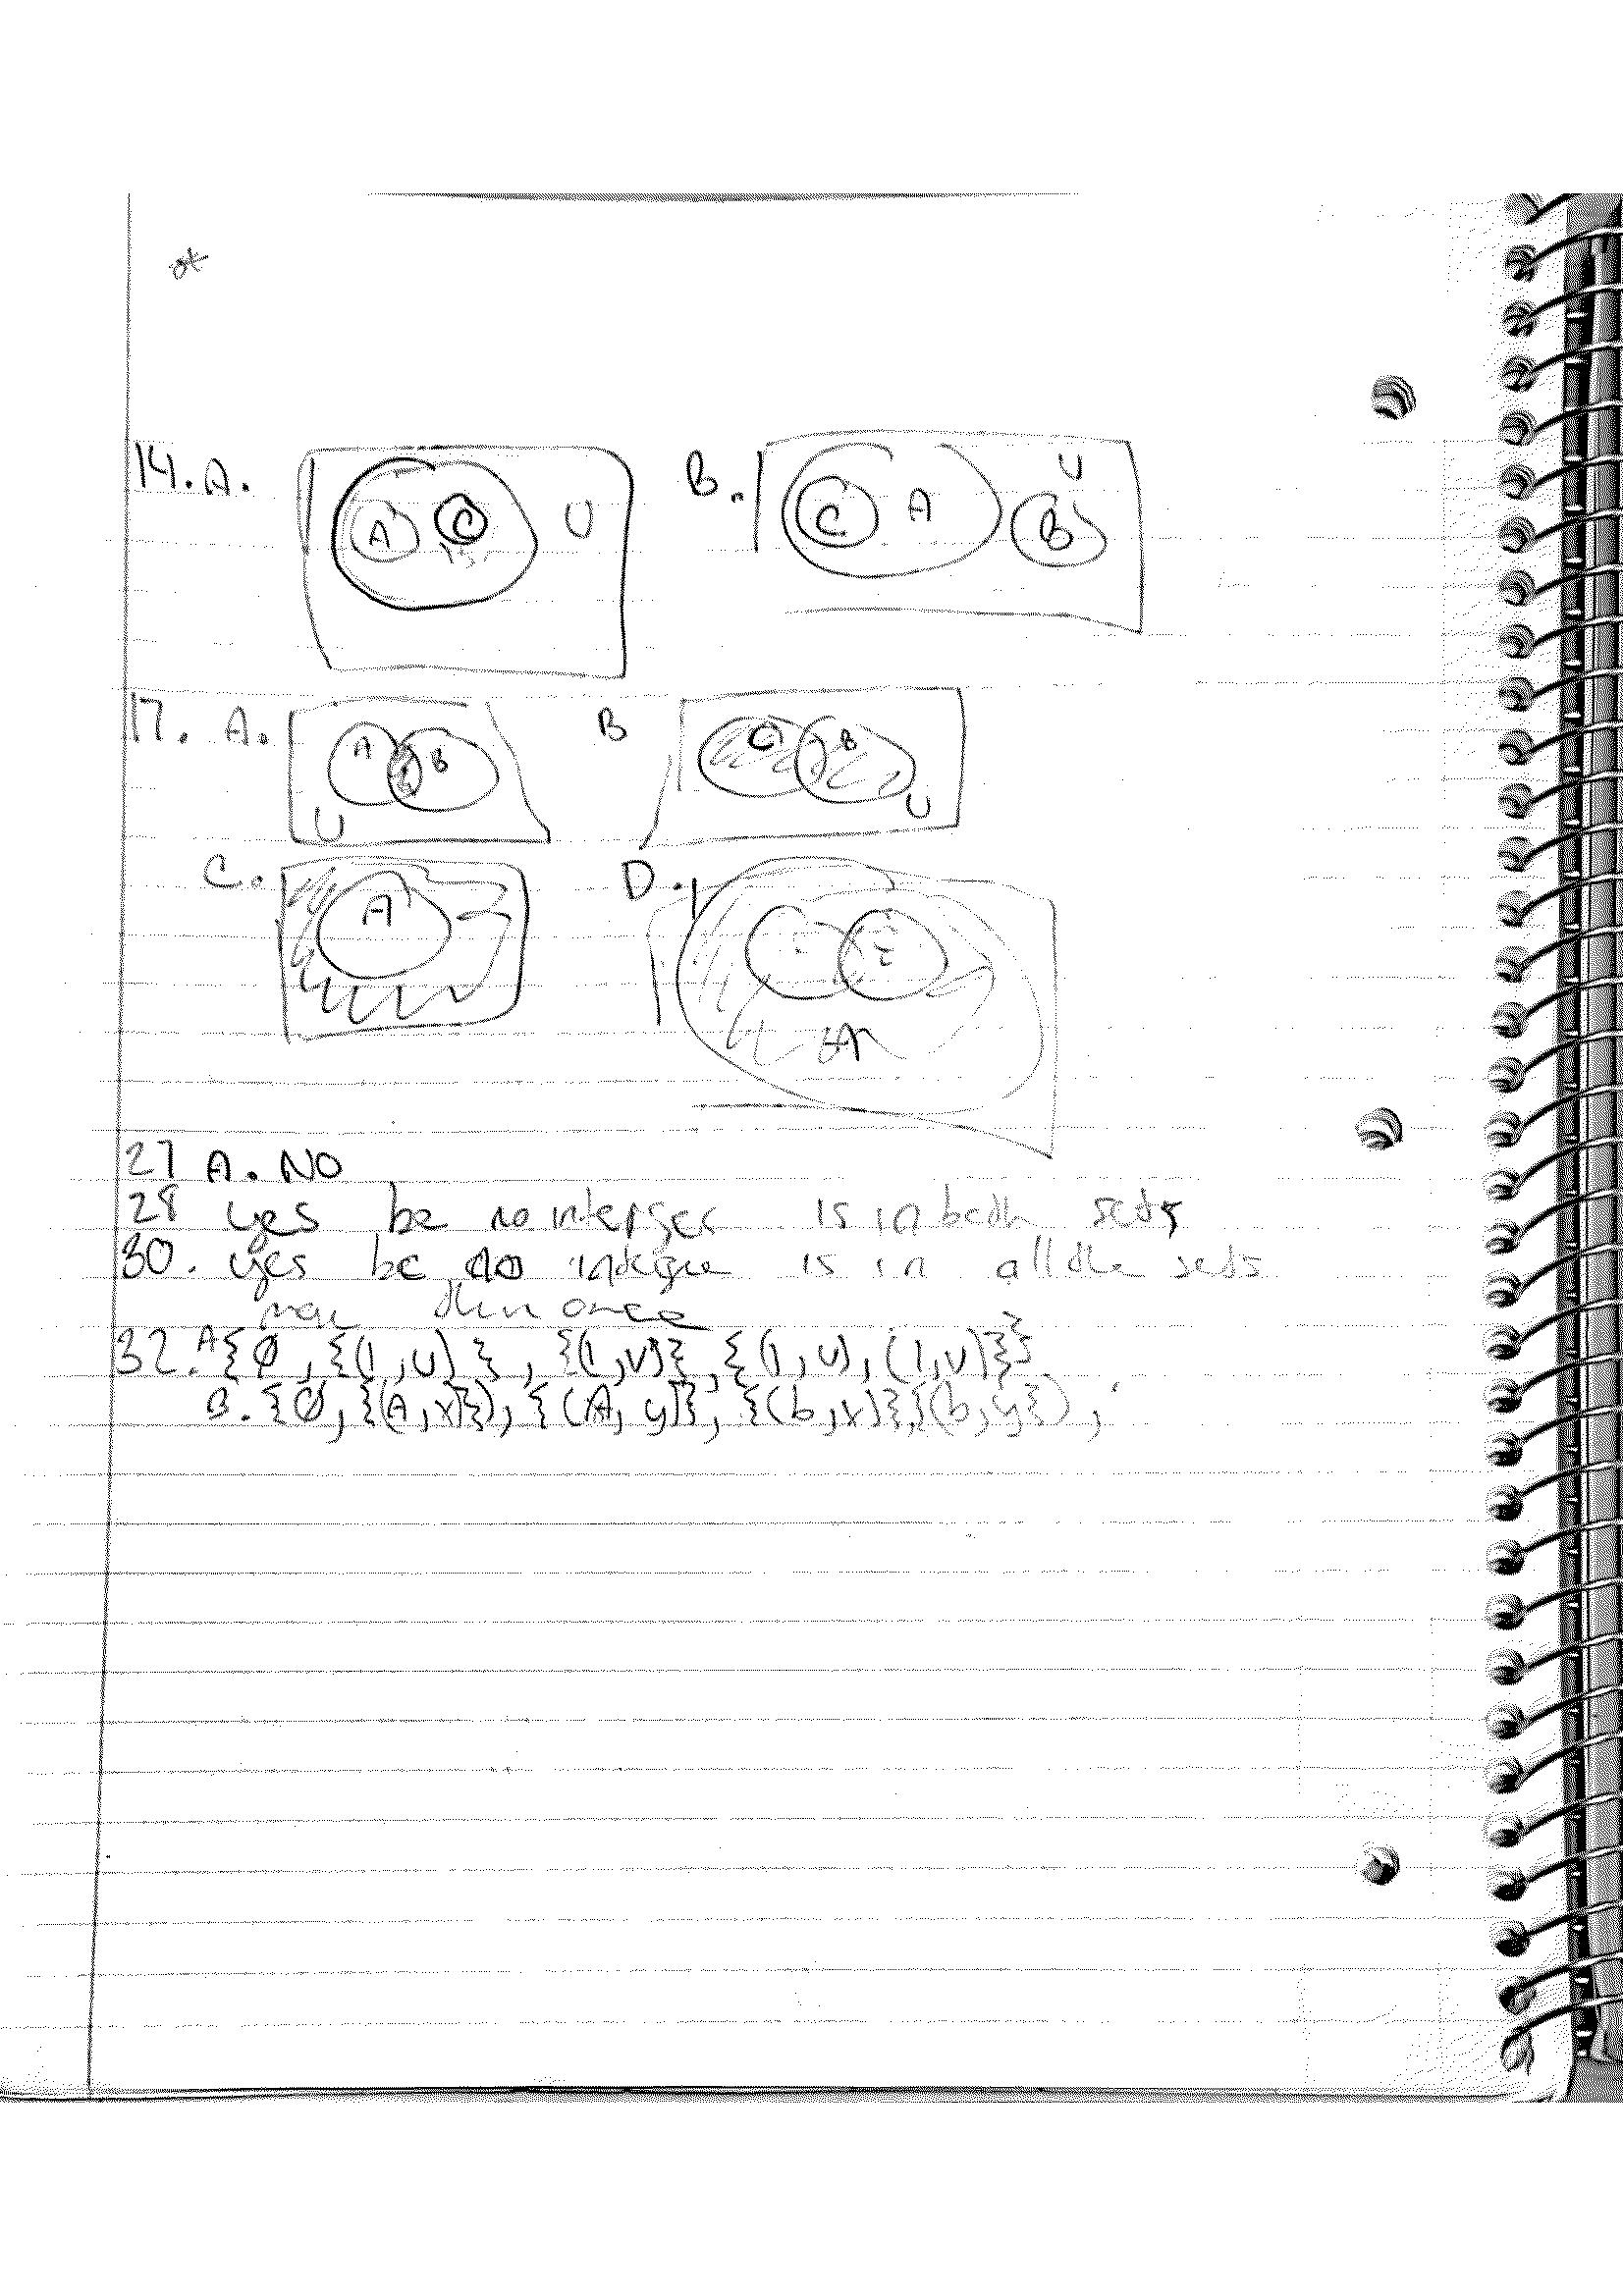 14. A.
A C U
B.
C A B U
17. A.
A B
U
B
C B
U
C.
A
D.
A
27 A. NO
28 yes bc no interger is in both sets
30. yes bc no is in all the sets
once
32. A {∅, {(1,u)}, {(1,v)}, {(1,u),(1,v)}}
B. {∅, {(A,x)}), {(A,y)}, {(b,x)}, {(b,y}),